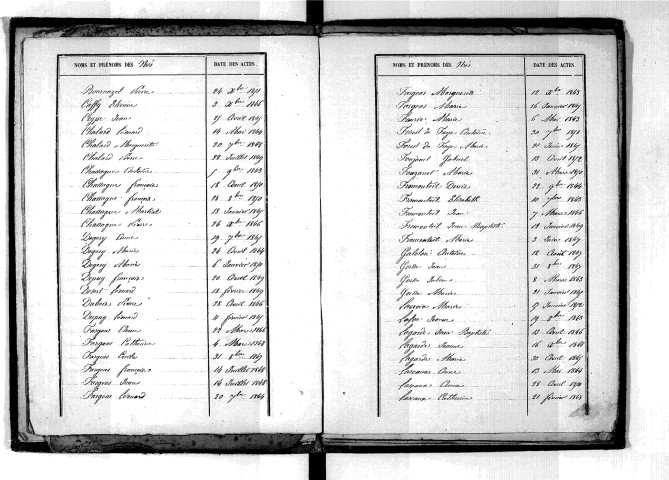 NOMS ET PRÉNOMS DES Nés
DATE DES ACTES.
Bournazel Pierre 24 Xbre 1871
Caffy Etienne 2 Xbre 1866
Ceype Jean 21 Aout 1867
Chalard Léonard 14 Mai 1869
Chalard Marguerite 20 7bre 1868
Chalard Pierre 28 Juillet 1869
Chassagne Antoine 1 9bre 1863
Chassagne françois 18 Aout 1870
Chassagne françois 18 8bre 1870
Chassagne Martial 18 Janvier 1867
Chassagne Pierre 26 Xbre 1866
Degery Anne 19 7bre 1867
Degery Marie 26 Aout 1864
Degery Marie Janvier 1871
Depuy françois 20 Avril 1869
Léonard 18 février 1869
Dubois Pierre 28 Aout 1866
Dupuy Léonard 11 février 1867
Fargeas Anne 22 Mars 1866
Fargeas Catherine 4 Mars 1868
Fargeas 31 8bre 1867
Fargeas françois 14 Juillet 1868
Fargeas Jean 14 Juillet 1868
Fargeas Léonard 20 7bre 1864
NOMS ET PRÉNOMS DES Nés
DATE DES ACTES.
Fargeas Marguerite 12 Xbre 1863
Fargeas Marie 16 Janvier 1867
Faurie Marie 6 Mai 1863
Antoine 30 7bre 1871
Marie 21 Juin 1867
Gabriel 13 Avril 1872
Marie 31 Mars 1870
Fromenteil Denis 22 9bre 1864
Fromenteil Elisabeth 10 7bre 1863
Fromenteil Jean 7 Mars 1866
Fromenteil Jean Baptiste 18 Janvier 1869
Fromenteil Marie 3 Juin 1867
Antoine 12 Aout 1867
Jean 31 8bre 1867
8 Mars 1863
Marie 21 Janvier 1867
Lacroix Marie 17 Janvier 1872
Lafon 19 8bre 1863
Lagarde Jean Baptiste 13 Aout 1866
Lagarde Jeanne 16 Xbre 1868
Lagarde Marie 30 Aout 1867
Lascaux Anne 13 Mai 1864
Lascaux Anna 28 Avril 1871
Lascaux Catherine 21 février 1865